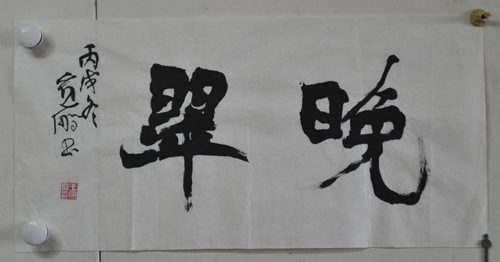 晚翠
丙戌冬
書